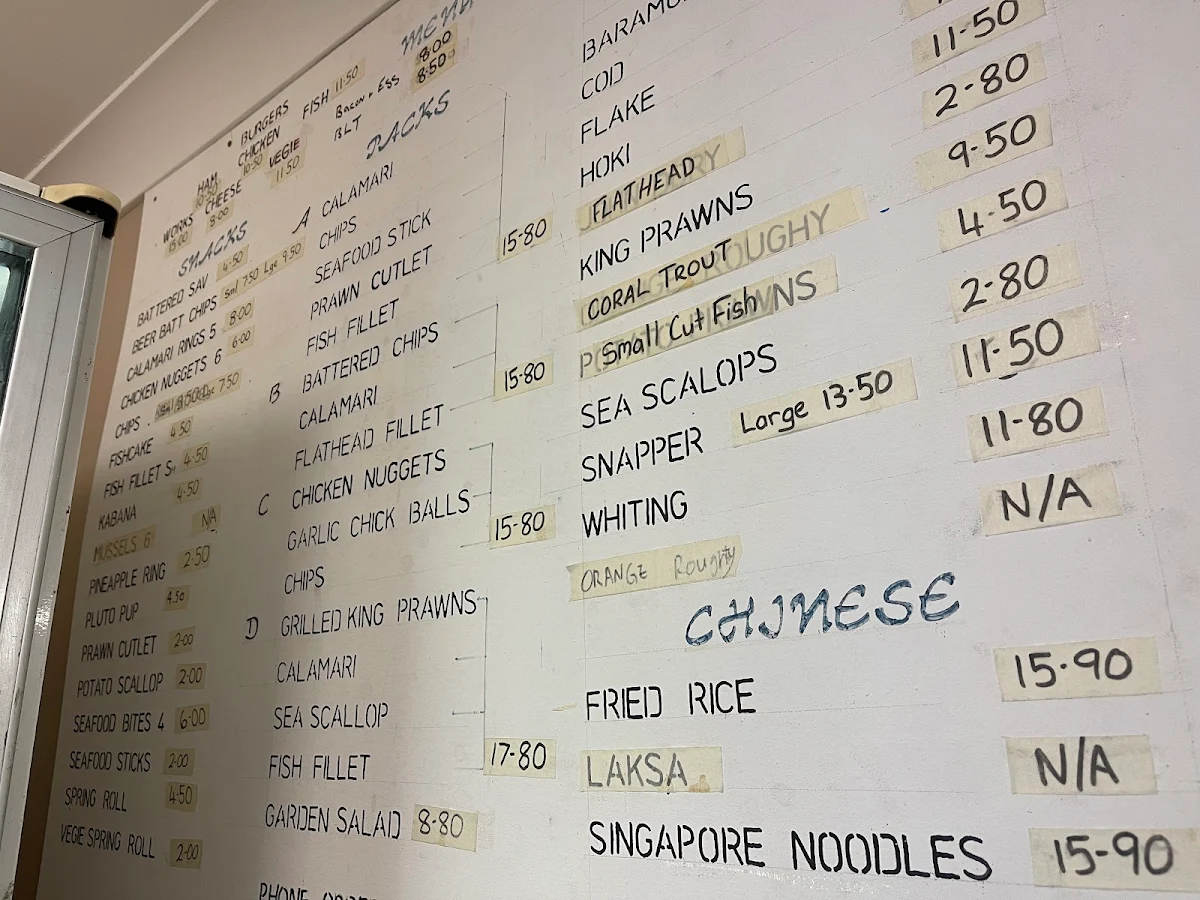 MENU
BURGERS FISH 11-50
CHICKEN 10-50
VEGIE 11-50
HAM 10-50
CHEESE 8-00
WORKS 15-00
Bacon + Egg 8-00
BLT 8-50
SNACKS
BATTERED SAV 4-50
BEER BATT CHIPS Sml 7-50 Lge 9-50
CALAMARI RINGS 5 8-00
CHICKEN NUGGETS 6 6-00
CHIPS
FISHCAKE 4-50
FISH FILLET 4-50
KABANA 4-50
MUSSELS 6 N/A
PINEAPPLE RING 2-50
PLUTO PUP 4-50
PRAWN CUTLET 2-00
POTATO SCALLOP 2-00
SEAFOOD BITES 4 6-00
SEAFOOD STICKS 2-00
SPRING ROLL 4-50
VEGIE SPRING ROLL 2-00
PACKS
A CALAMARI
CHIPS
SEAFOOD STICK
PRAWN CUTLET
FISH FILLET 15-80
B BATTERED CHIPS
CALAMARI
FLATHEAD FILLET 15-80
C CHICKEN NUGGETS
GARLIC CHICK BALLS
CHIPS 15-80
D GRILLED KING PRAWNS
CALAMARI
SEA SCALLOP
FISH FILLET 17-80
GARDEN SALAD 8-80
COD
FLAKE
HOKI
FLATHEAD 11-50
KING PRAWNS 2-80
CORAL TROUT 9-50
Small Cut Fish 4-50
SEA SCALOPS 2-80
SNAPPER Large 13-50 11-50
WHITING 11-80
ORANGE Roughy N/A
CHINESE
FRIED RICE 15-90
LAKSA N/A
SINGAPORE NOODLES 15-90
PHONE